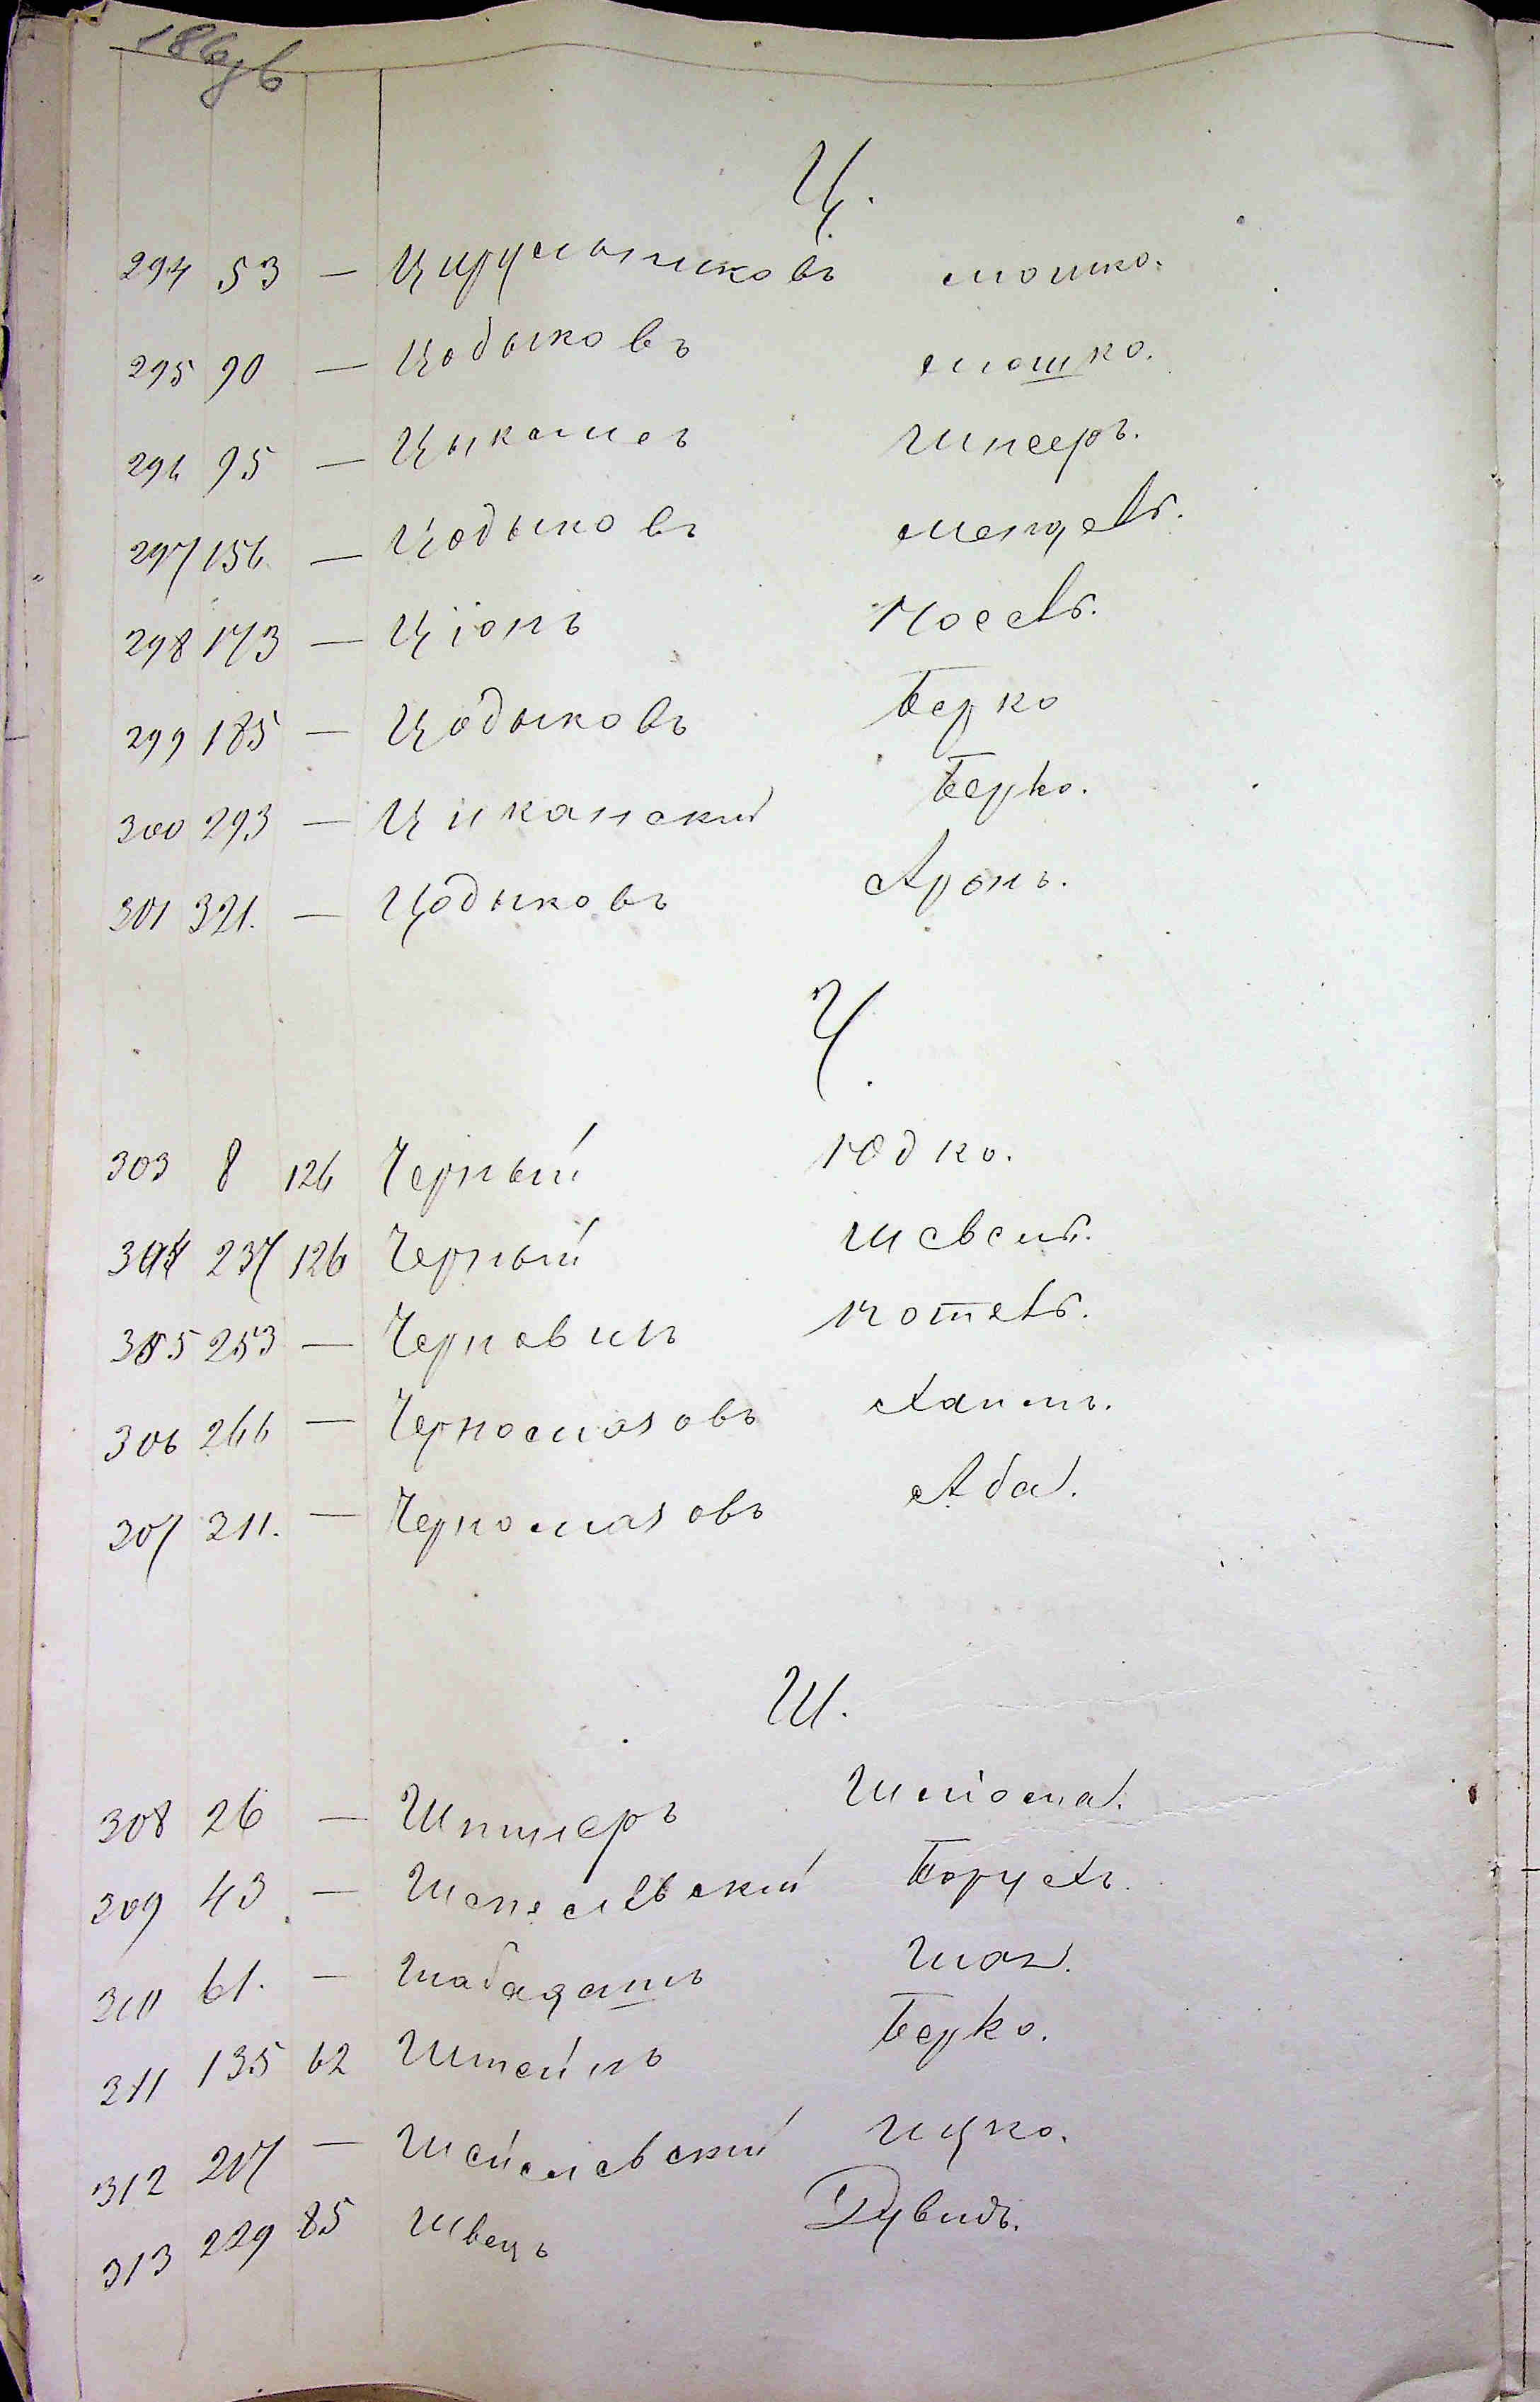 186 об
Ц.
294 53 — Цирульниковъ Мошко.
295 90 — Цодыковъ Мошко.
296 95 — Цыкал
297 156 — Цодыковъ Мендель.
298 173 — Ціонъ Іосель.
299 185 — Цодыковъ Берко
300 293 — Циканскій Берко.
301 321. — Цодыковъ Аронъ.
Ч.
303 8 126 Черный Юдко.
304 237 126 Черный Шевель.
305 253 — Черновилъ Мотель.
306 266 — Черномазовъ Хаимъ.
307 311. — Черномазовъ Аба.
Ш.
308 26 — Шпилеръ Шліома.
309 43 — Шепелевскій Борухъ.
310 61. — Шабадашъ
311 135 62 Штейнъ Берко.
312 207 — Шейелевскій Ицко.
313 229 85 Швецъ Дувидъ.